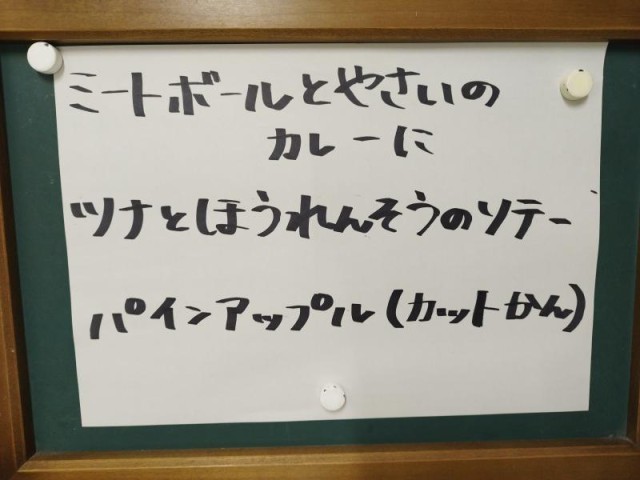 ミートボールとやさいの
カレーに
ツナとほうれんそうのソテー
パインアップル(カットかん)